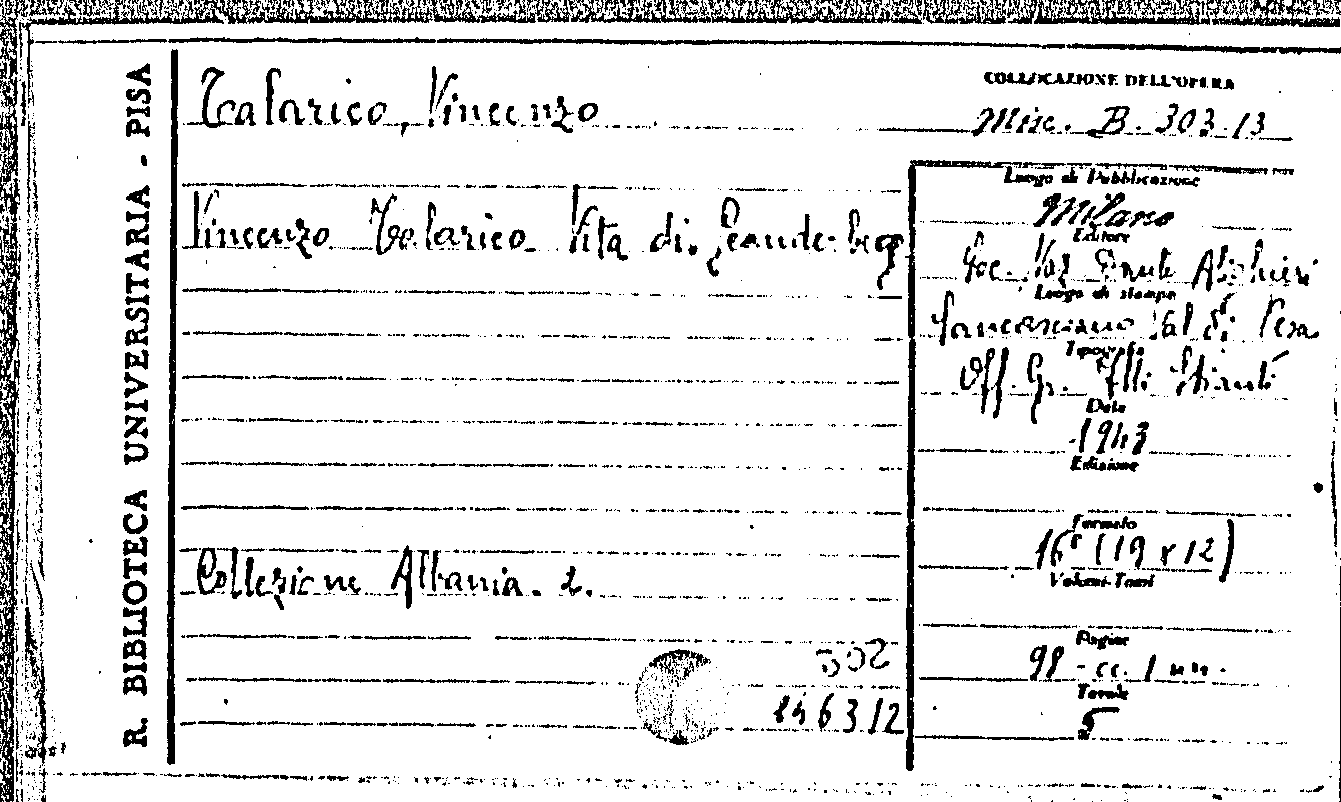 R. BIBLIOTECA UNIVERSITARIA - PISA
Talarico, Vincenzo
COLLOCAZIONE DELL'OPERA
Misc. B. 303.13
Vincenzo Talarico. Vita di Scander-beg
Luogo di Pubblicazione
Milano
Editore
Soc. Naz. Dante Alighieri
Luogo di stampa
Sancasciano Val di Pesa
Tipografo
Off. Gr. F.lli Stianti
Data
1943
Edizione
Formato
16° (19 x 12)
Volumi-Tomi
Collezione Albania. 2.
Pagine
98 - cc. 1 nn.
Tavole
5